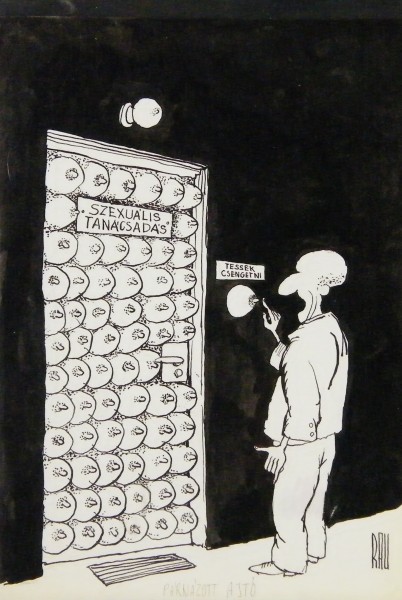 SZEXUÁLIS
TANÁCSADÁS
TESSÉK
CSENGETNI
RAU
PÁRNÁZOTT AJTÓ